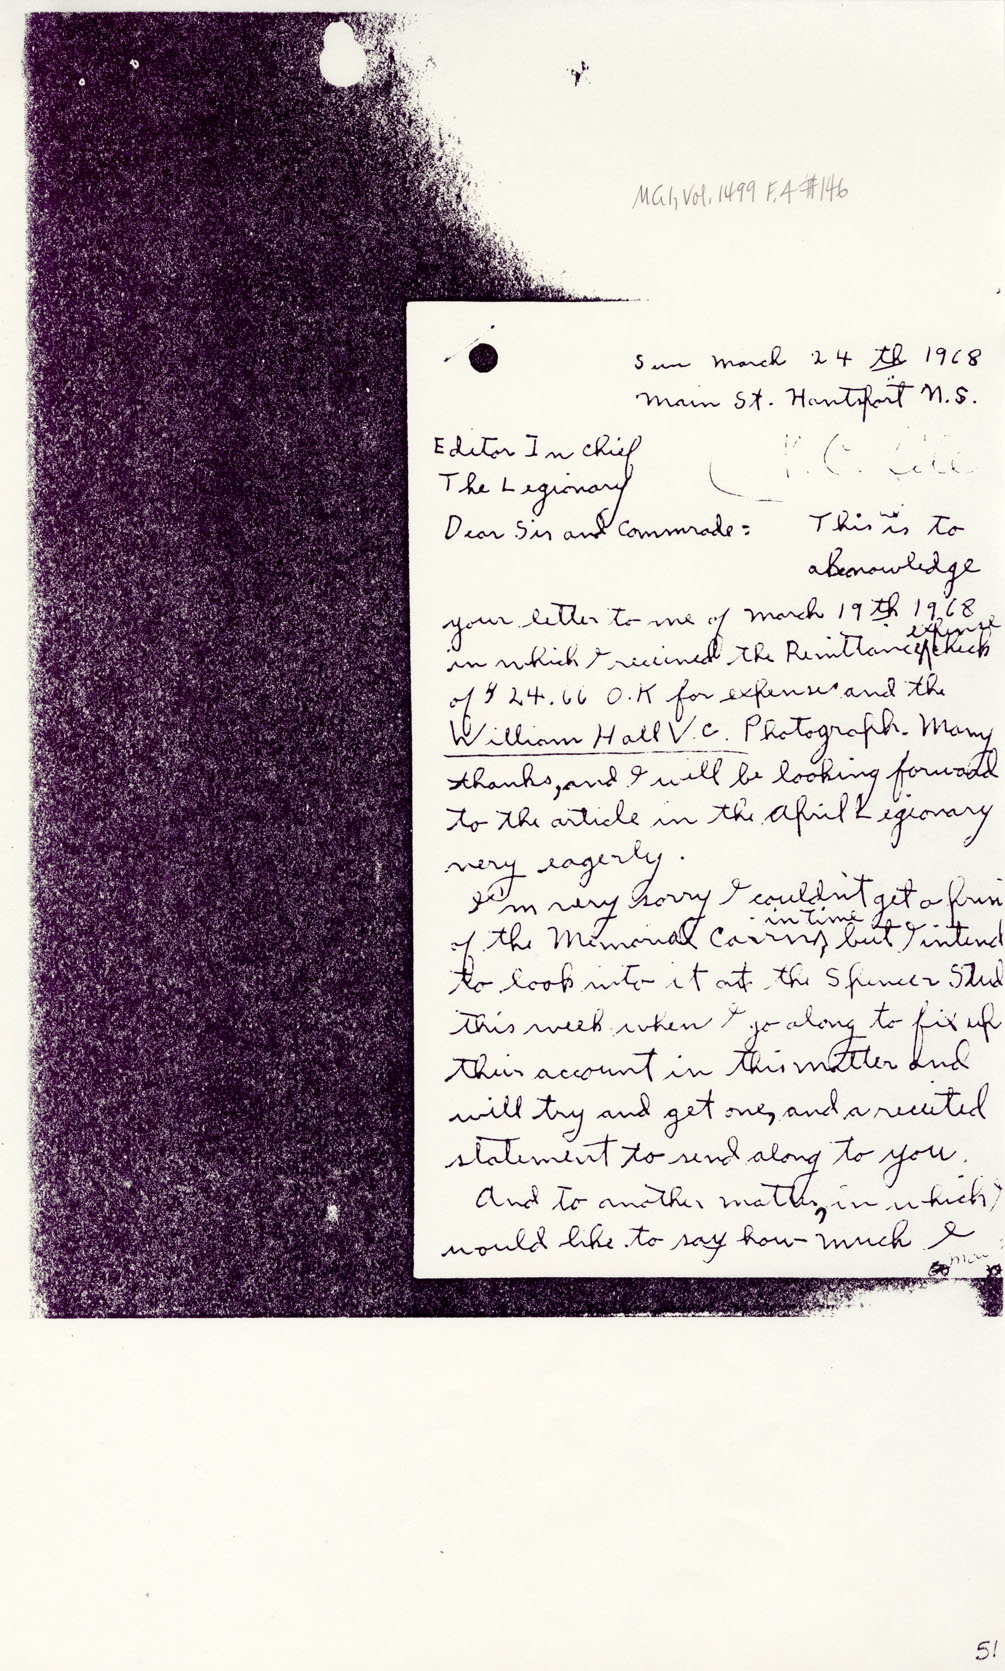 MG1, Vol. 1499 F.4 #146
Sun March 24 th 1968
Main St. Hantsport N.S.
Editor In Chief
The Legionary
Dear Sir and Commrade: This is to
acknowledge
your letter to me of March 19 th 1968
expense
in which I received the Remittance check
of $ 24.66 O.K for expenses and the
William Hall V.C. Photograph. Many
thanks, and I will be looking forward
to the article in the April Legionary
very eagerly.
I'm very sorry I couldn't get a
in time
of the Memorial Cairn, but I intend
to look into it at the Spencer Stud
this week when I go along to fix up
their account in this matter and
will try and get one, and a receited
statement to send along to you.
And to another matter, in which I
would like to say how much I
51